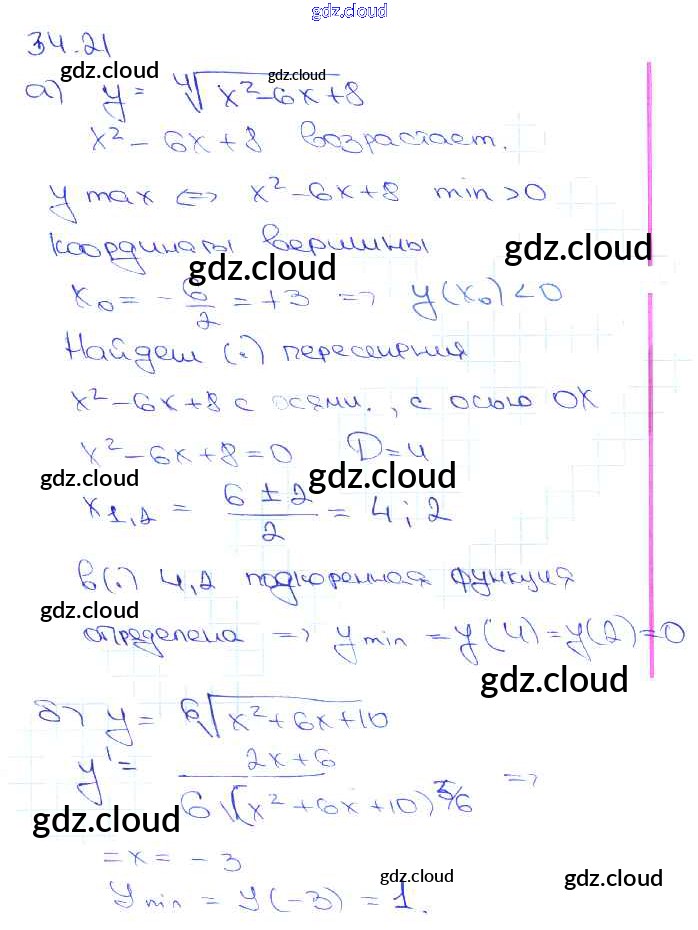 gdz.cloud
34.21
gdz.cloud gdz.cloud
а) y = ∜(x²-6x+8)
x² - 6x + 8 возрастает.
y max ⇔ x²-6x+8 min >0
координаты вершины
gdz.cloud
gdz.cloud
x₀ = - 6/2 = +3 => y(x₀) < 0
Найдем (·) пересечения
x²-6x+8 с осями. , с осью OX
x² - 6x + 8 = 0 D=4
gdz.cloud gdz.cloud
x₁,₂ = (6 ± 2)/2 = 4; 2
в(·) 4,2 подкоренная функция
gdz.cloud
определена => y min = y(4) = y(2) = 0
gdz.cloud
б) y = ⁶√(x²+6x+10)
y' = (2x+6)/(6√(x²+6x+10)^5/6) =>
gdz.cloud
= x = - 3
gdz.cloud gdz.cloud
y min = y(-3) = 1.